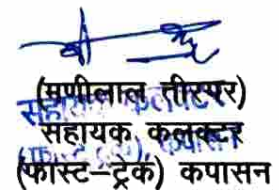 (मणीलाल तीरगर)
सहायक कलक्टर
(फास्ट–ट्रेक) कपासन